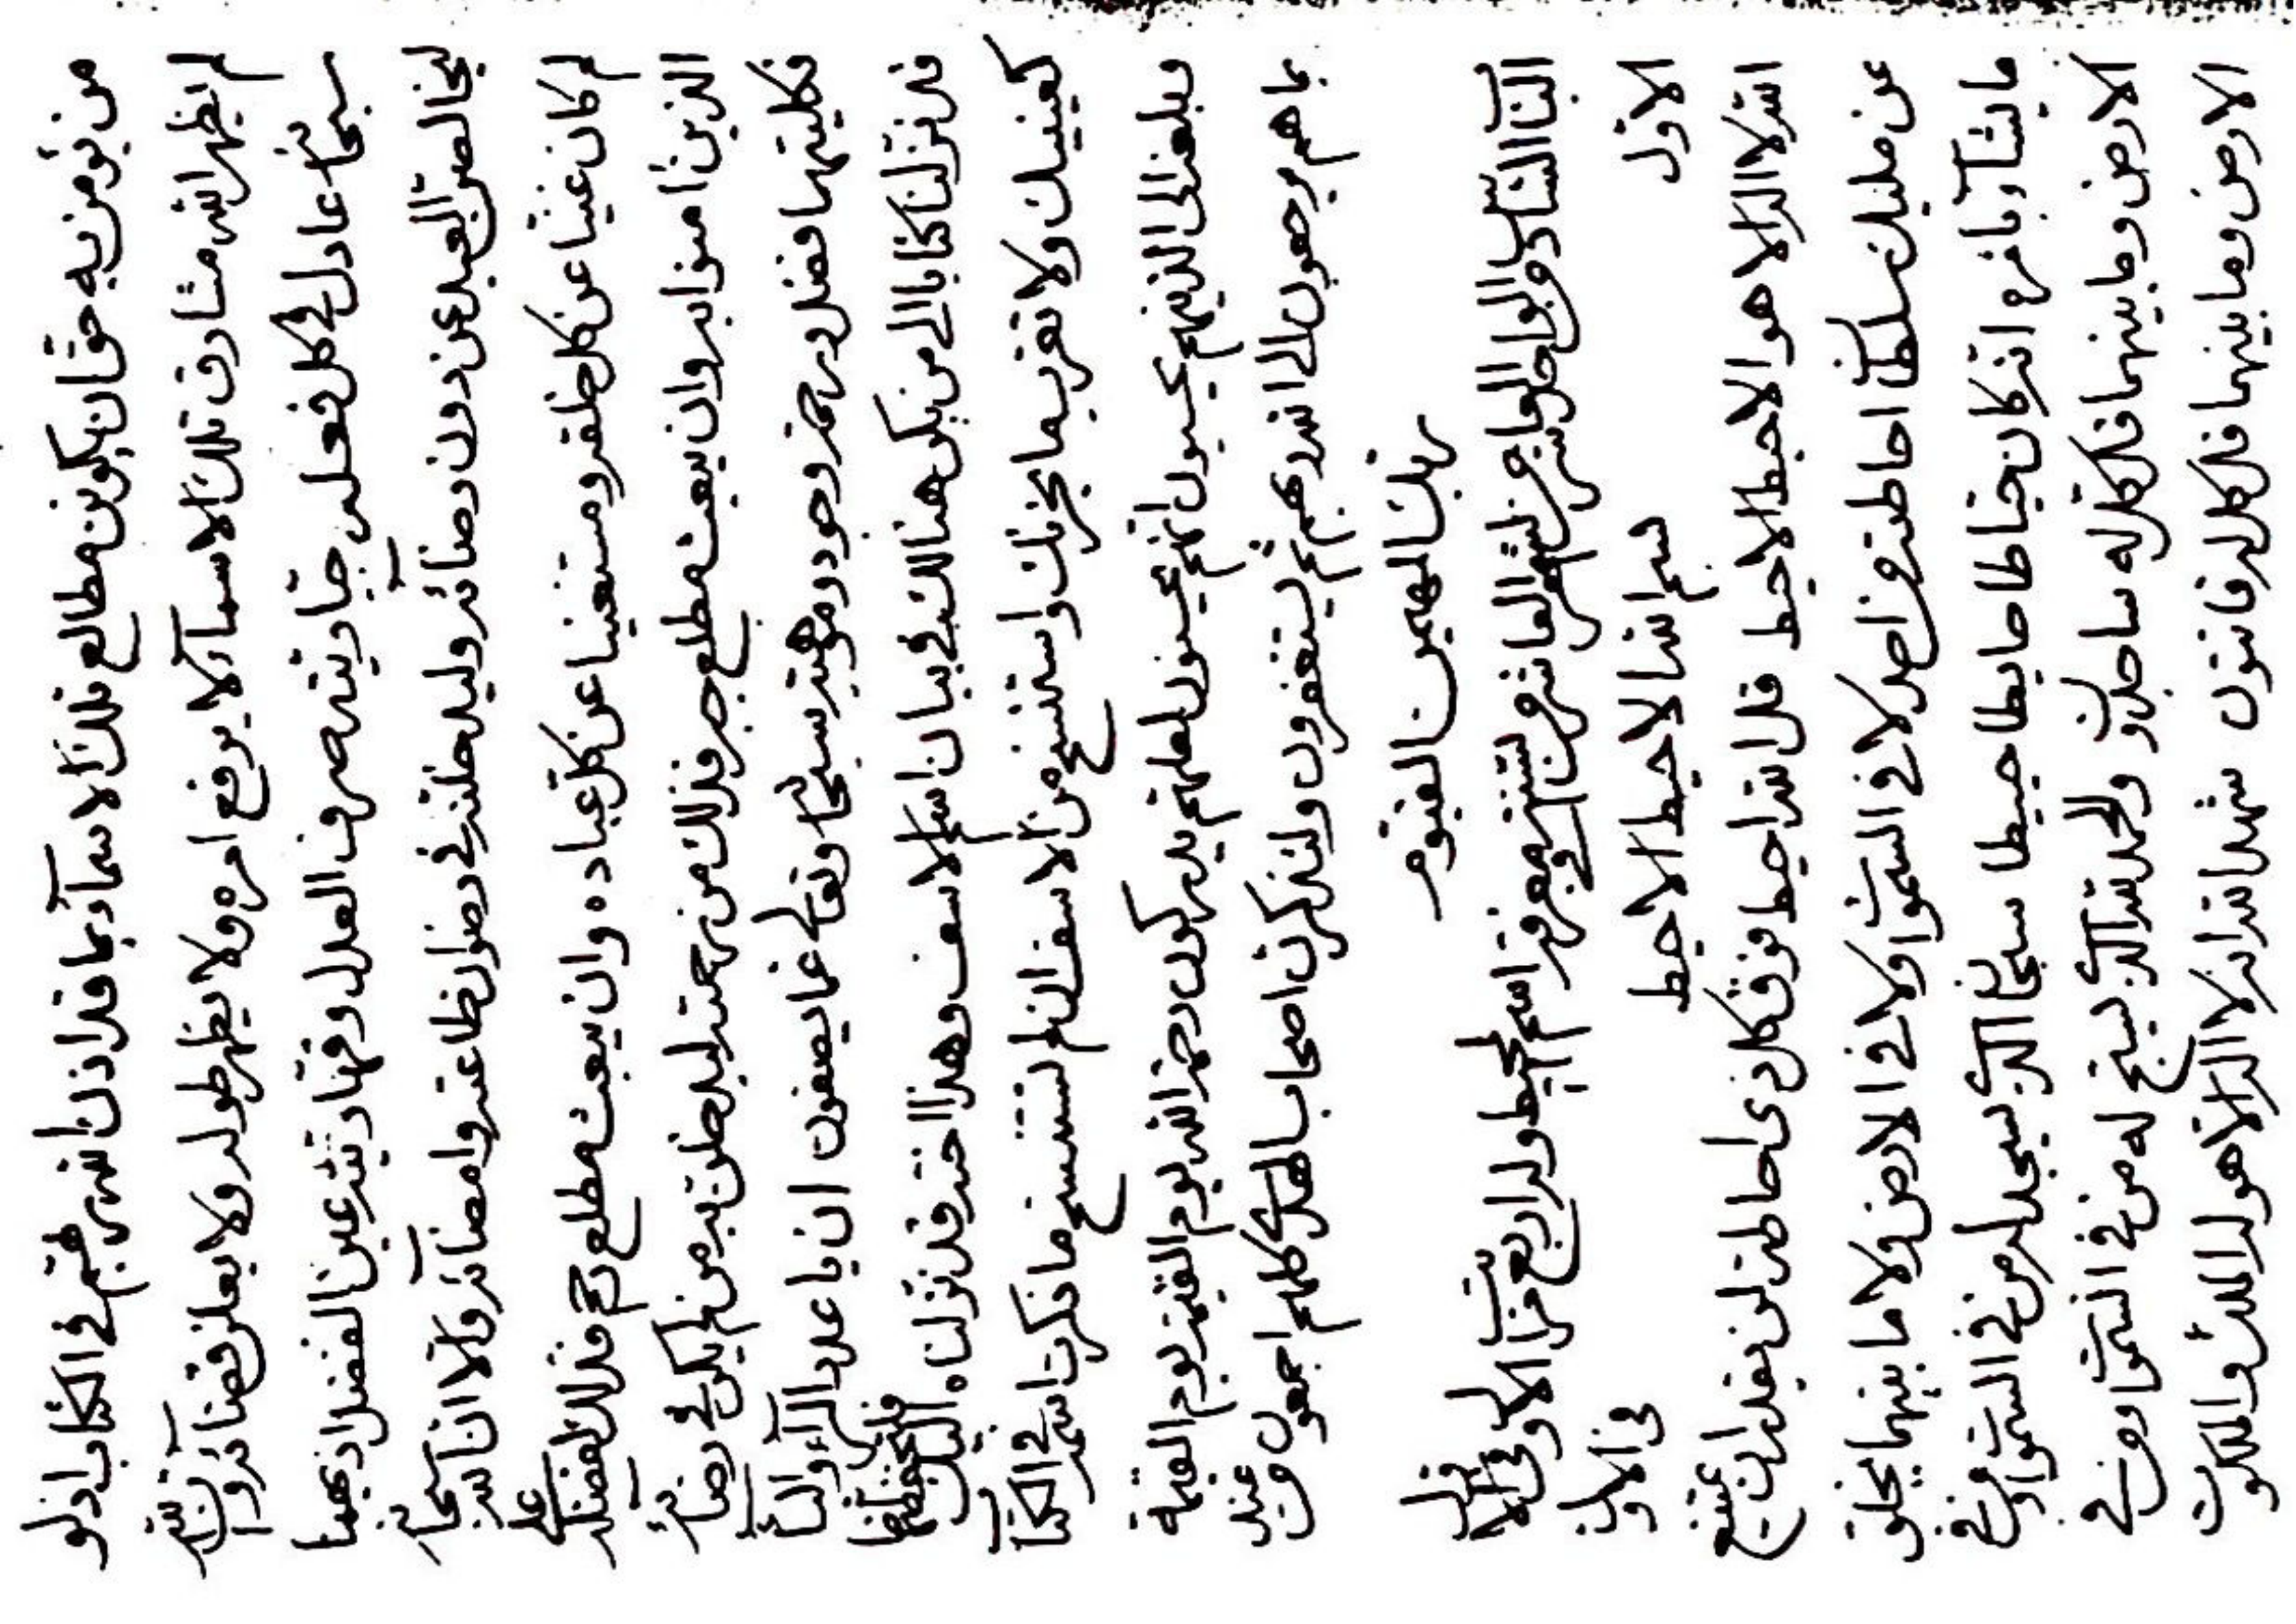 من نؤمن به حق ان يكونن مطالع تلك الاسمآء بما قد اذن الله ربهم في الكتاب اذ لو
لم يظهر الله مشارق تلك الاسمآء لا يرفع امره ولا يظهر طوله ولا يعلن قضائه وان الله
سبحانه عادل في كل فعله جباريته صرف العدل وقهاريته عين الفضل اذ بهما
ليخالصن العبد عن دون رضائه وليدخلنه في رضوان طاعته وامضآئه والا ان الله سبحانه
لم كان غنيا عن كل خلقه ومستغنيا عن كل عباده وان يبعث مطلع رحم فذلك لفضله على
الذين امنوا به وان يبعث مطلع جبر فذلك من رحمته ليدخلن به من لم يكن في رضائه
فكليتهما فضل ورحمة وجود وموهبة سبحانه وتعالى عما يصفون ان يا عدد الرآء والبآء
قد نزلنا كتابا الى من يكن هنالك في بيان اسم الاسف وهذا اخر قد نزلناه اليك فلتحفظهما
كعينيك ولا تقرب بما يحزنك واستنسخ من الاسف ان لم تستنسخ ما ذكرت اسمه في الكتاب
وبلغ الى الذينهم يحبون انهم يحسنون لعلهم يدركون رحمة الله يوم القيمة يوم القيمة
بما هم يرجعون الى الله ربهم ثم يستغفرون ولتذكرن اصحاب الهدى كلهم اجمعون من عند
ربك المهيمن القيوم
الباب السادس والواحد والعاشر من الشهر العاشر من السنة في معرفة اسم المحيط وله اربع مراتب الاول في الاول
الاول في الاول
بسم الله الاحيط الاحيط
الله لا اله الا هو الاحيط الاحيط قل الله احيط فوق كل ذى احاطة لن يقدر ان يمتنع
عن مليك سلطان احاطته من احد لا في السموات ولا في الارض ولا ما بينهما يخلق
ما يشآء بامره انه كان حياطا حايطا حييطا سبحان الذي يسجد له من في السموات ومن في
الارض وما بينهما قل كل له ساجدون والحمد لله الذي يسبح له من في السموات ومن في
الارض وما بينهما قل كل له قانتون شهد الله انه لا اله الا هو له الملك والملكوت